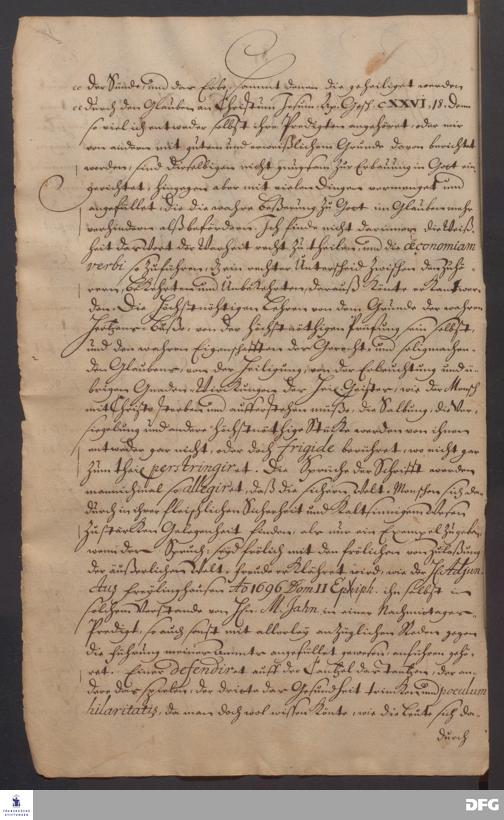 der Sünde, und das Erbe, sammt denen die geheiliget werden
durch den Glauben an Christum Jesum. Ap. Gesch. c XXVI, 18. Denn
so viel ich entweder selbst ihre Predigten angehöret, oder mir
von andern mit guten und Grunde davon berichtet
worden, sind dieselbigen nicht gnugsam zur Erbauung in Gott ein
gerichtet, hingegen aber mit vielen Dingen vermenget und
angefüllet, die die wahre Beßerung zu Gott im Glauben mehr
verhindern alß befördern. Ich finde nicht darinnen die Weiß-
heit das Wort der Warheit recht zu theilen, und die œconomiam
verbi so zuführen, daß ein rechter Unterscheid zwischen den Zuhö-
rern, Bekehrten und Unbekehrten, darauß könte erkant wer-
den. Die Höchstnöthigen Lehren von dem Grunde der wahren
Hertzens-Buße, von der höchst nöthigen Prüfung sein selbst,
und den wahren Eigenschafften des Gerecht- und seligmachen-
den Glaubens, von der Heiligung, von der Erleuchtung und ü-
brigen Gnaden-Wirckungen des Heil. Geistes, wie der Mensch
mit Christo sterben und aufferstehen müße, die Salbung, die Ver-
siegelung und andere höchstnöthige Stücke werden von ihnen
entweder gar nicht, oder doch frigide berühret, wo nicht gar
zum theil perstringiret. Die Sprüche der Schrifft werden
mannichmal so allegiret, daß die sichern Welt-Menschen sich da-
durch in ihrer fleischlichen Sicherheit und kaltsinnigen Wesen
zustärcken Gelegenheit finden, als nur ein Exempel zugeben,
wenn der Spruch: seyd frölich mit den frölichen von Zulaßung
der äußerlichen Welt-Freude erklähret wird, wie der H. Adjun.
Aug Freylinghausen Ao 1696 Dom II Epiph. ihn selbst in
solchem Verstande von Hn. M. Jahn in einer Nachmittages-
Predigt, so auch sonst mit allerley anzüglichen Reden gegen
die Führung meines Ammts angefüllet gewesen, anführen gehö-
ret. Einer defendiret auff der Cantzel das tantzen, der an-
dere das spielen, der dritte das Gesundheit trincken und poculum
hilaritatis, da man doch wol wissen könte, wie die Leute sich da-
durch
FRANCKESCHE STIFTUNGEN
DFG